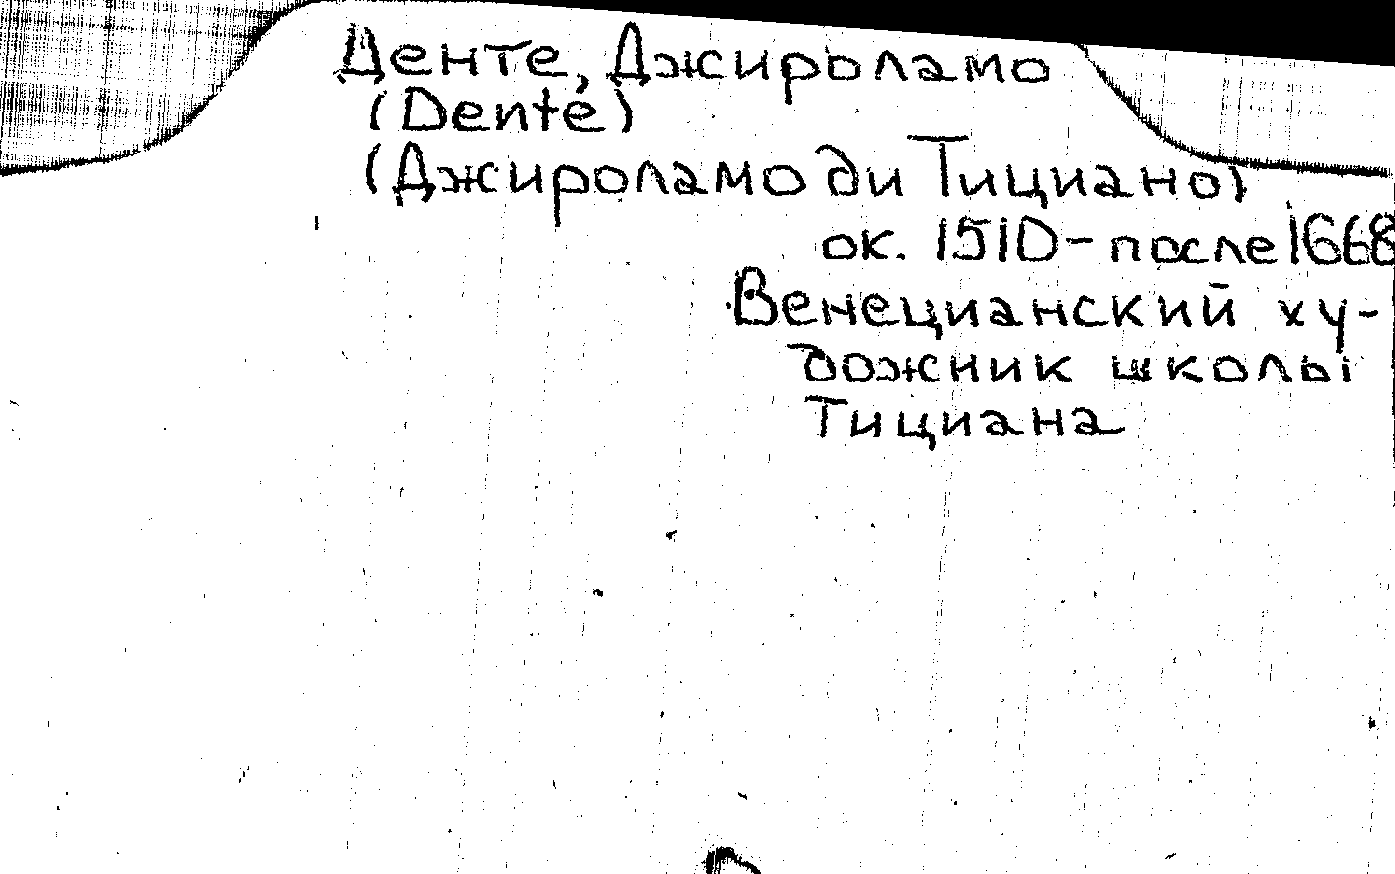 Денте, Джироламо
(Dente)
(Джироламо ди Тициано)
ок. 1510- после 1668
Венецианский ху-
дожник школы
Тициана